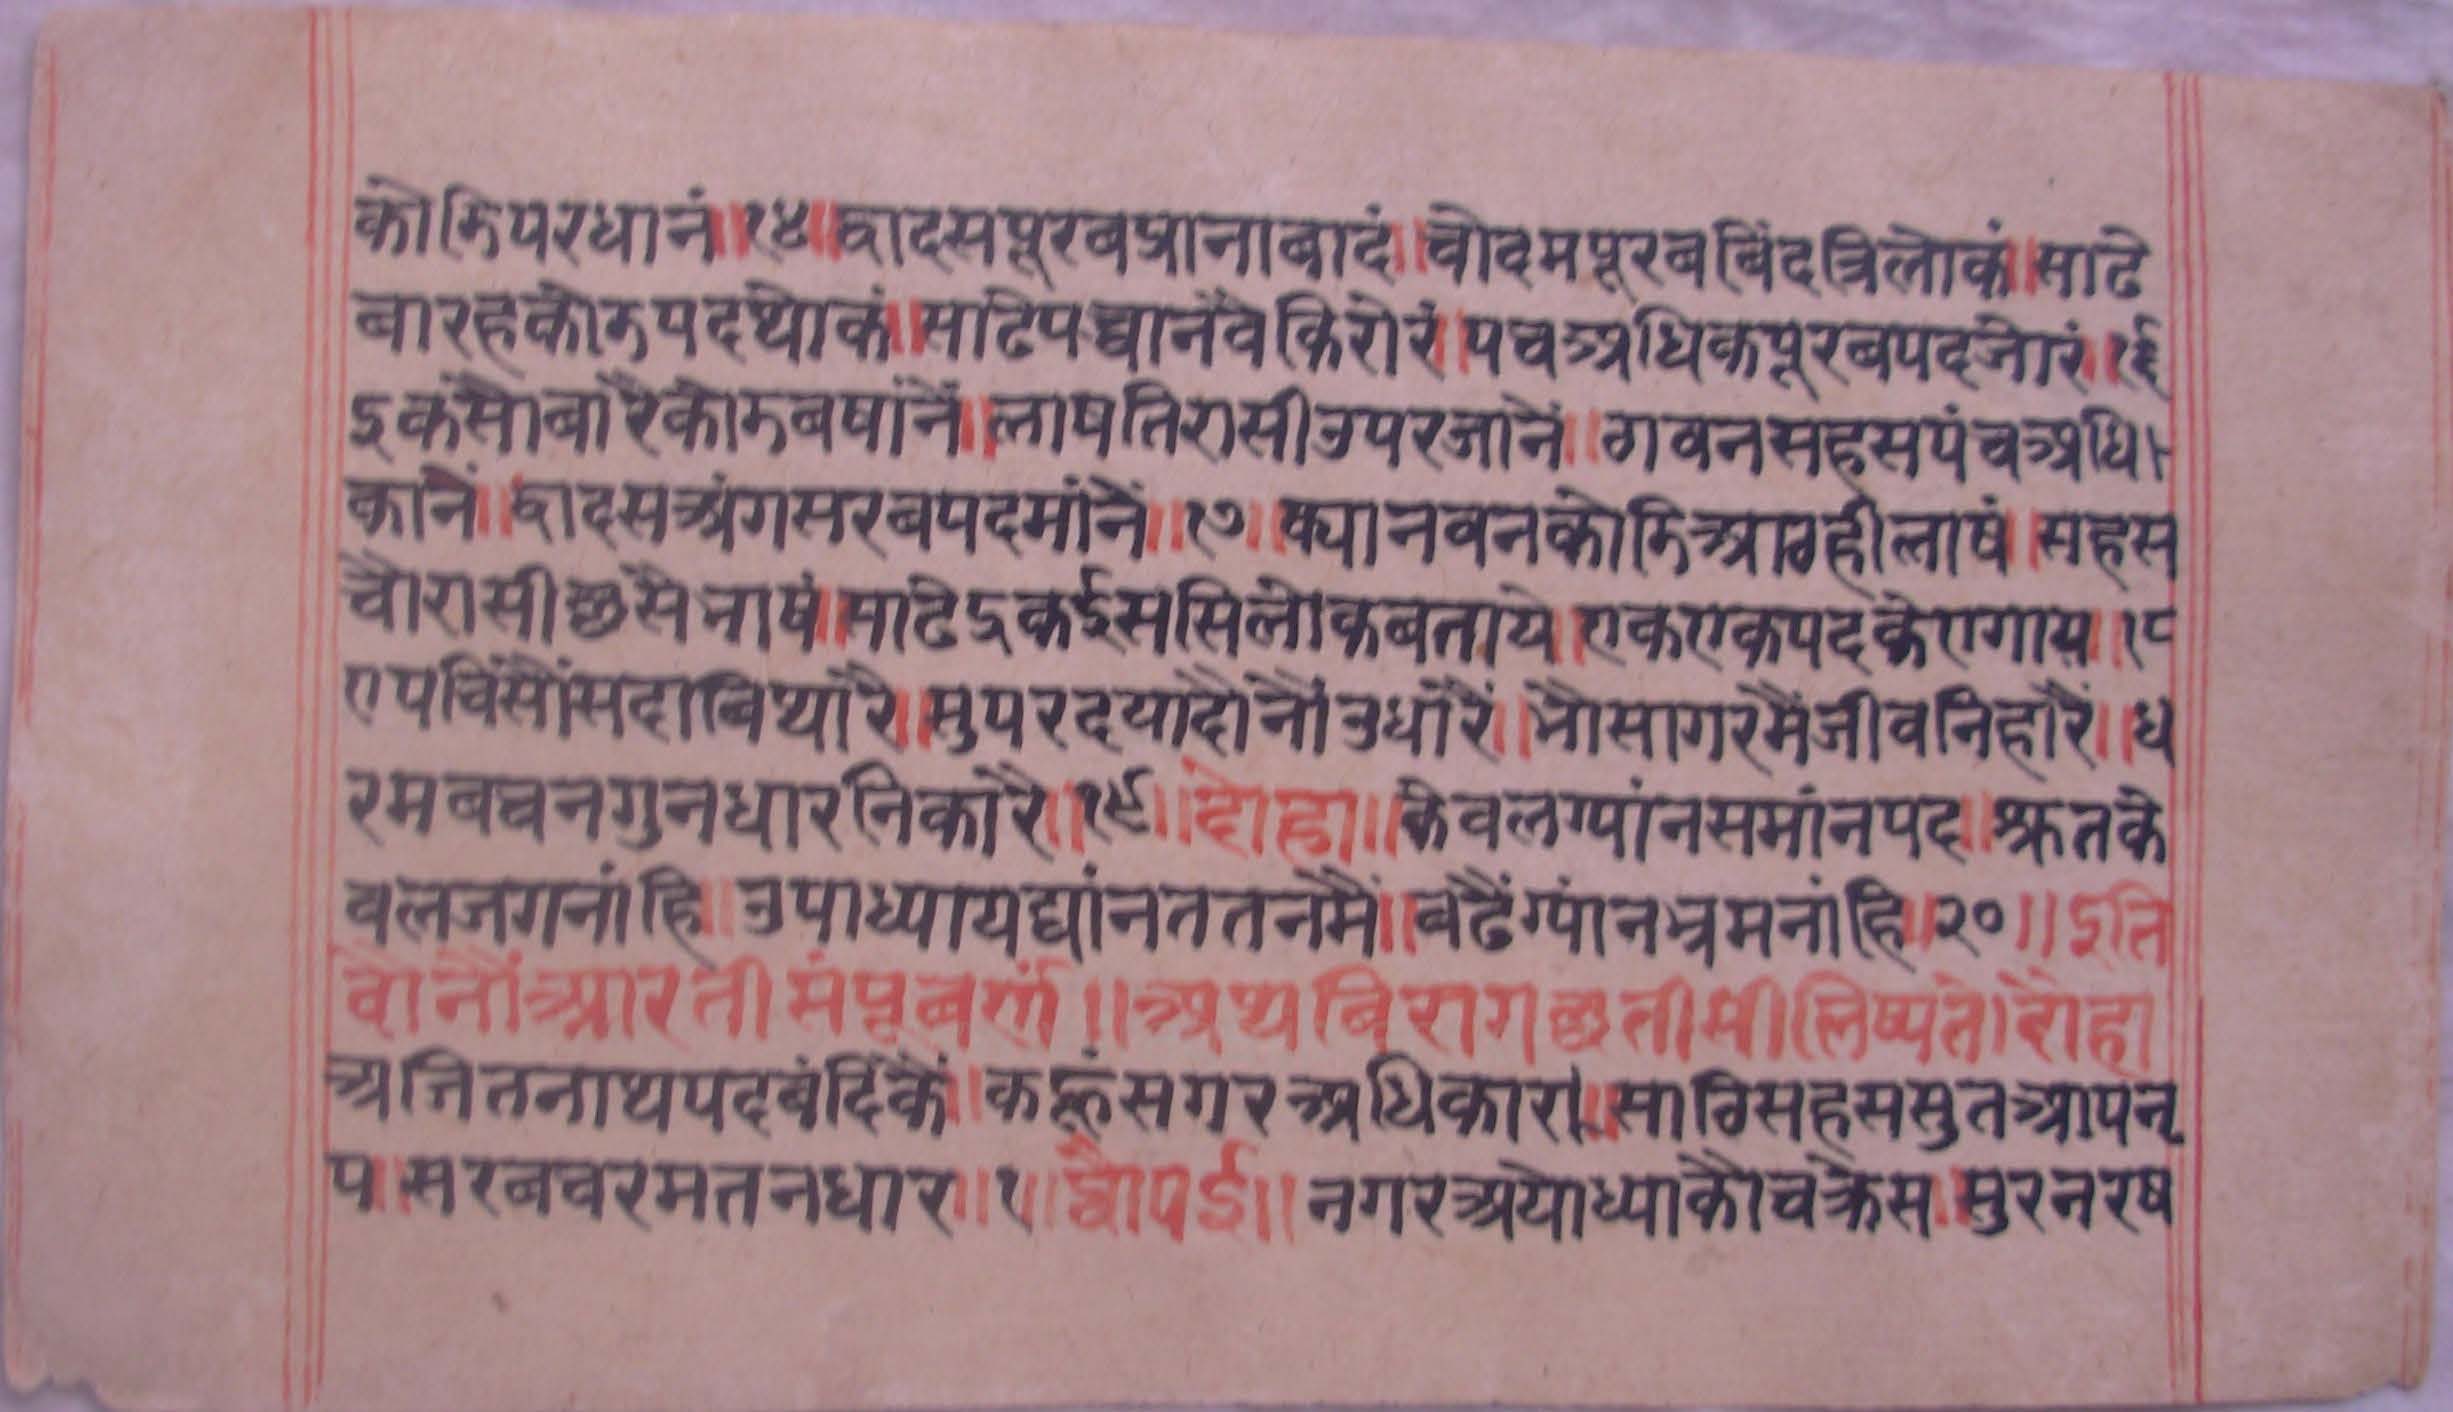 कोडिपरधानं॥१४॥द्वादसपूरबप्रानाबादं॥चोदमपूरबबिंदत्रिलोकं॥साढे
बारहकोडपदथोकं॥साढेपच्चानंवैकिरोरं॥पचअधिकपूरबपदजोरं॥१६
इकसौबारैकोडबषांनैं॥लाषतिरासीउपरजानैं॥ठावनसहसपंचअधि
कानैं॥द्वादसअंगसरबपदमांनैं॥१७॥क्यानवनकोडिआठहीलाषं॥सहस
चौरासीछसैनाषं॥साढेइकईससिलोकबताये॥एकएकपदकेएगाय॥१८
एपचिंसौंसदाबिथारै॥सुपरदयादोनौंउधारैं॥भौसागरमैंजीवनिहारै॥ध
रमबचनगुनधारनिकारै॥१९॥दोहा॥केवलग्यांनसमांनपद॥श्रुतके
वलजगनांहि॥उपाध्यायद्यांनततनमैं॥बढैंग्यांनभ्रमनांहि॥२०॥इति
चौनौंआरतीसंपूर्ब्णं॥अथबिरागछतीसीलिष्यते।दोहा
अजितनाथपदबंदिकैं॥कहूंसगरअधिकार॥साठिसहससुतआपनृ
प॥सरबचरमतनधार॥१॥चौपई॥नगरअयोध्याकौचक्रेस॥सुरनरष